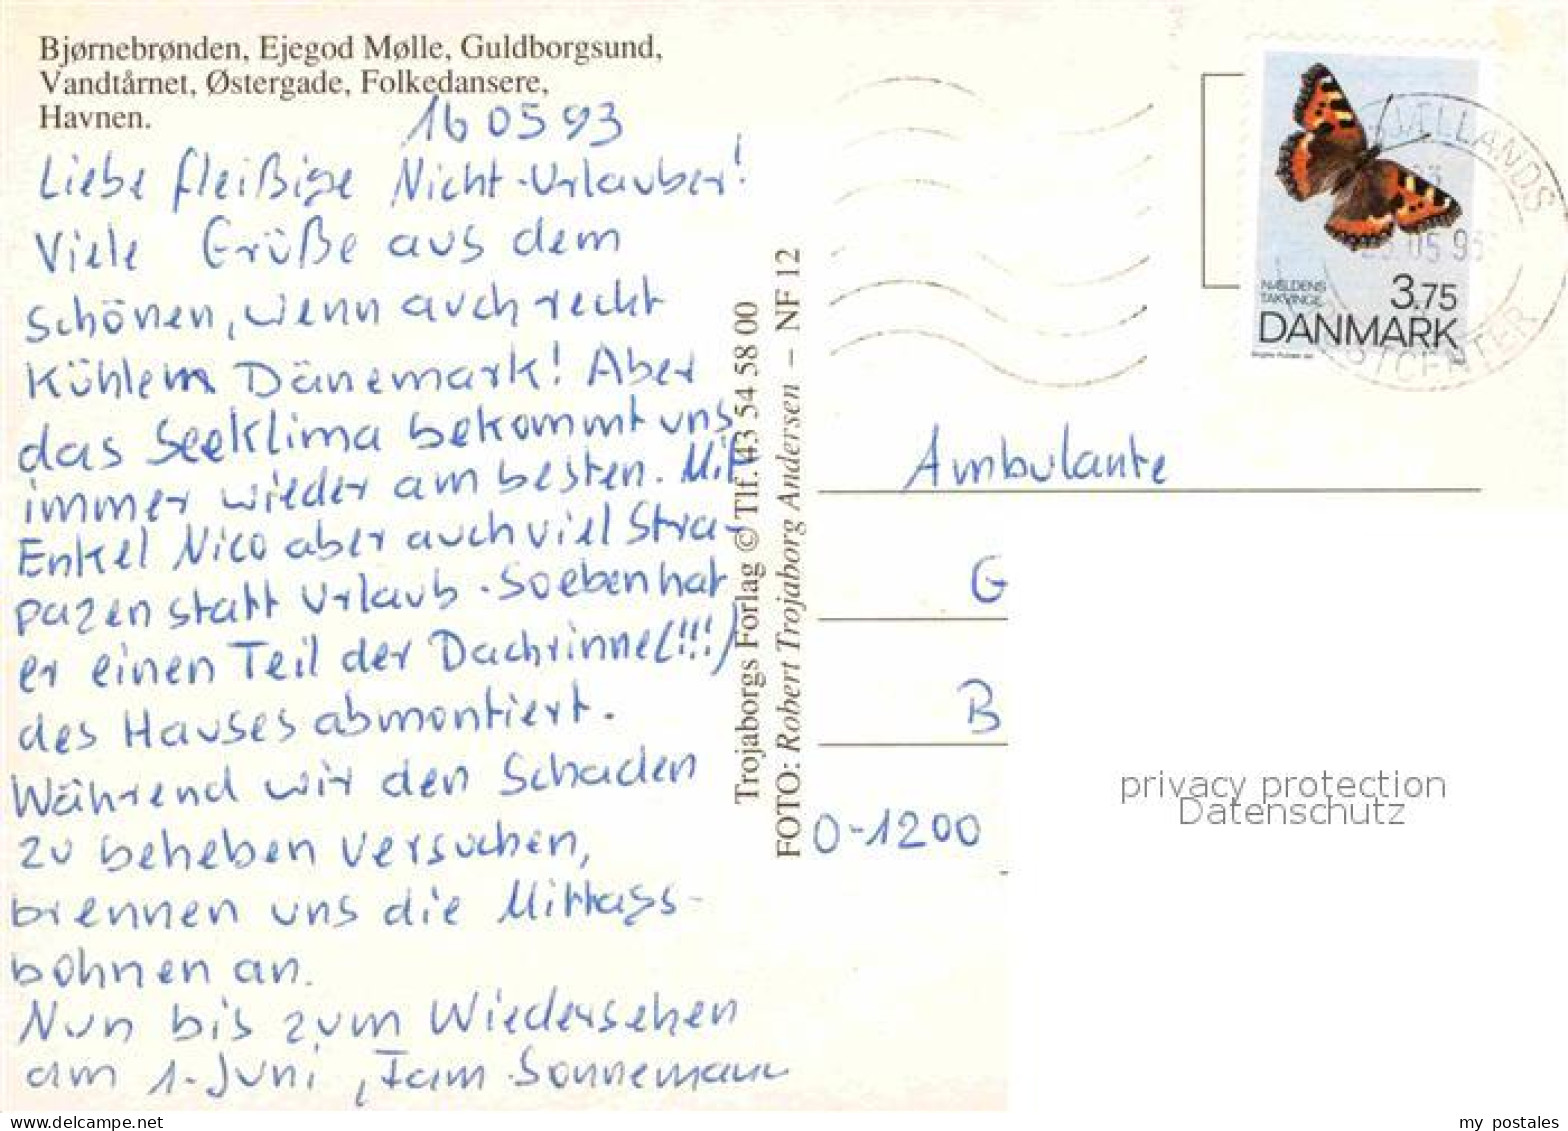 Bjørnebrønden, Ejegod Mølle, Guldborgsund,
Vandtårnet, Østergade, Folkedansere,
Havnen.
16 05 93
Liebe fleißige Nicht-Urlauber!
Viele Grüße aus dem
schönen, wenn auch recht
kühlem Dänemark! Aber
das Seeklima bekommt uns
immer wieder am besten. Mit
Enkel Nico aber auch viel Stra-
pazen statt Urlaub. Soeben hat
er einen Teil der Dachrinne(!!!)
des Hauses abmontiert.
Während wir den Schaden
zu beheben versuchen,
brennen uns die Mittags-
bohnen an.
Nun bis zum Wiedersehen
am 1. Juni, Fam. Sonnemann
Trojaborgs Forlag © Tlf. 43 54 58 00
FOTO: Robert Trojaborg Andersen – NF 12
NÆLDENS
TAKVINGE
3,75
DANMARK
05 93
Ambulante
G
B
O-1200
privacy protection
Datenschutz
www.delcampe.net
my_postales